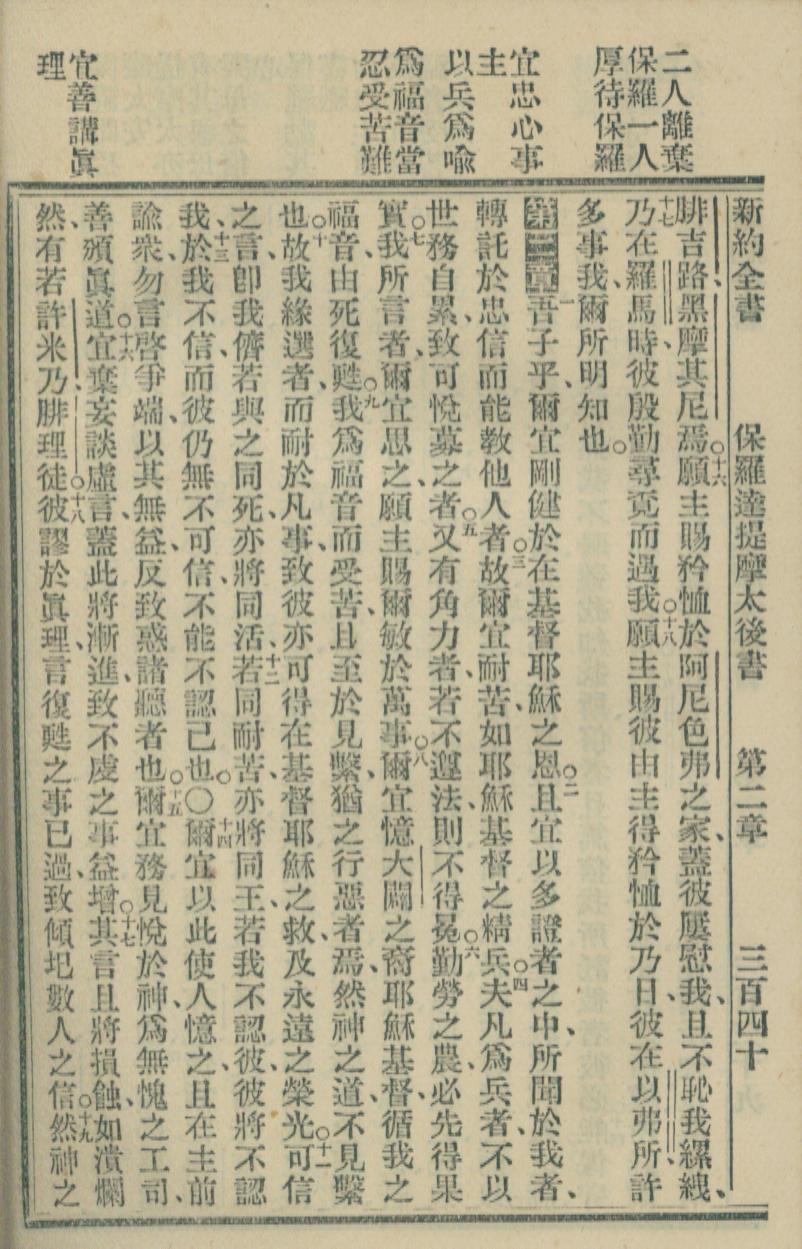 二人離棄
保羅一人
厚待保羅
宜忠心事
主
以兵爲喻
爲福音當
忍受苦難
宜善講眞
理
新約全書 保羅達提摩太後書 第二章 三百四十
腓吉路、黑摩其尼焉。○十六願主賜矜恤於阿尼色弗之家、蓋彼屢慰我、且不恥我縲絏、
十七乃在羅馬時、彼殷勤尋覓而遇我。○十八願主賜彼由主得矜恤於乃日、彼在以弗所、許
多事我、爾所明知也。
第二章一吾子乎、爾宜剛健於在基督耶穌之恩。○二且宜以多證者之中、所聞於我者、
轉託於忠信而能教他人者。○三故爾宜耐苦、如耶穌基督之精兵。○四夫凡爲兵者、不以
世務自累、致可悅募之者。○五又有角力者、若不遵法、則不得冕。○六勤勞之農、必先得果
實。○七我所言者、爾宜思之、願主賜爾敏於萬事。○八爾宜憶大闢之裔耶穌基督、循我之
福音、由死復甦。○九我爲福音而受苦、且至於見繫、猶之行惡者焉、然神之道、不見繫
也。○十故我緣選者、而耐於凡事、致彼亦可得在基督耶穌之救、及永遠之榮光。○十一可信
之言、卽我儕若與之同死、亦將同活、十二若同耐苦、亦將同王、若我不認彼、彼將不認
我、十三於我不信、而彼仍無不可信、不能不認己也。○十四爾宜以此使人憶之、且在主前
諭衆、勿言啓爭端、以其無益、反致惑諸聽者也。○十五爾宜務見悅於神、爲無愧之工司、
善頒眞道。○十六宜棄妄談虛言、蓋此將漸進、致不虔之事益增。○十七其言且將損蝕、如潰爛
然、有若許米乃、腓理徒。○十八彼謬於眞理、言復甦之事已過、致傾圮數人之信。○十九然神之